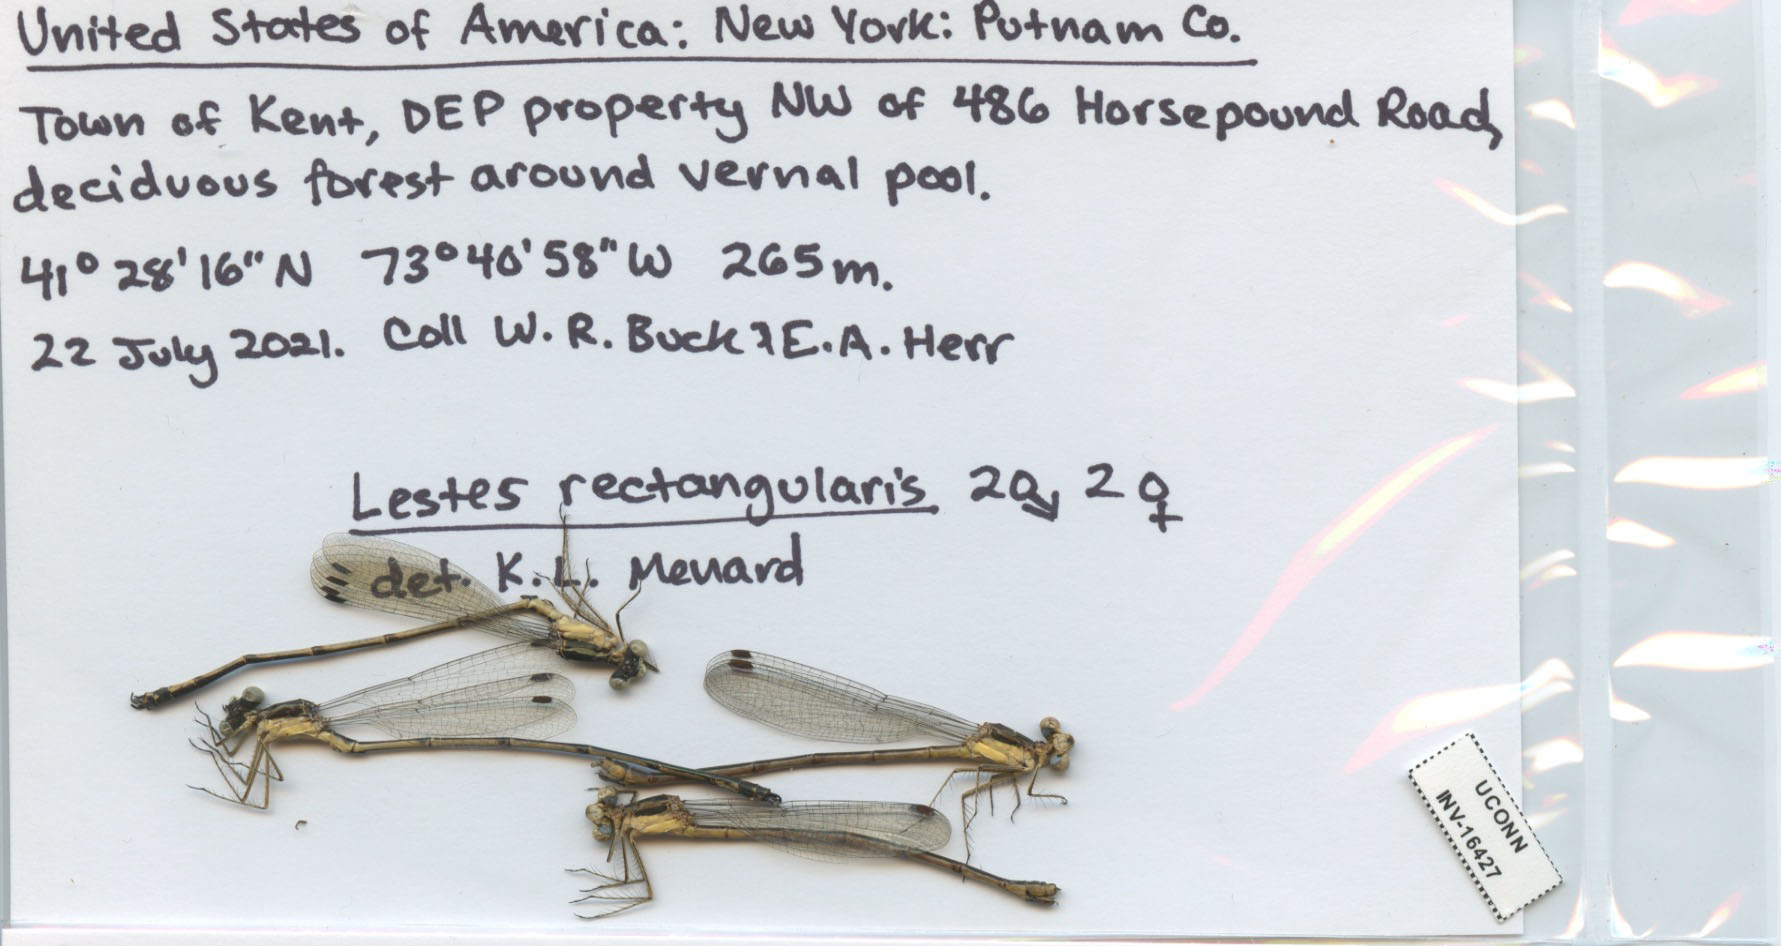 United States of America: New York: Putnam Co.
Town of Kent, DEP property NW of 486 Horsepound Road,
deciduous forest around vernal pool.
41° 28' 16" N 73° 40' 58" W 265 m.
22 July 2021. Coll W. R. Buck & E. A. Herr
Lestes rectangularis 2♂, 2♀
det. K. L. Menard
UCONN
INV-16427